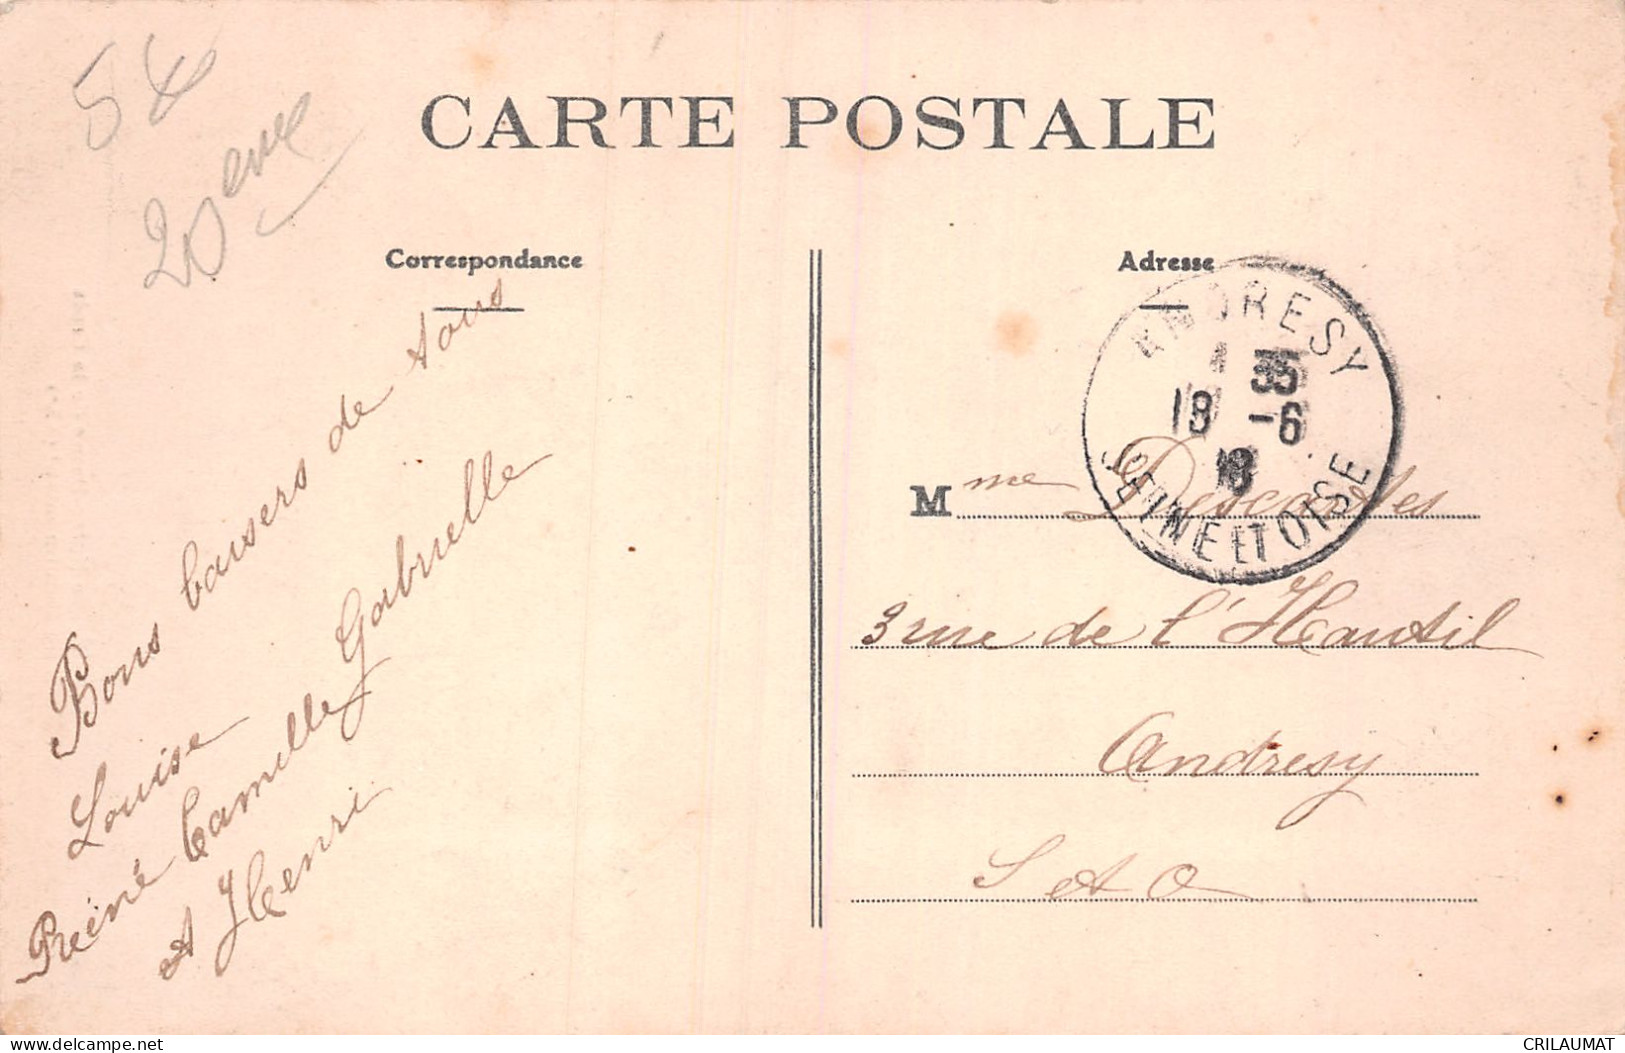 54
20eme
CARTE POSTALE
Correspondance
Adresse
Bons baisers de tous
Louise
Reine Camille Gabrielle
et Henri
ANDRESY
35
18 -6
18
SEINE ET OISE
Mme Descartes
3 rue de l'Hautil
Andresy
S et O
delcampe.net
CRILAUMAT